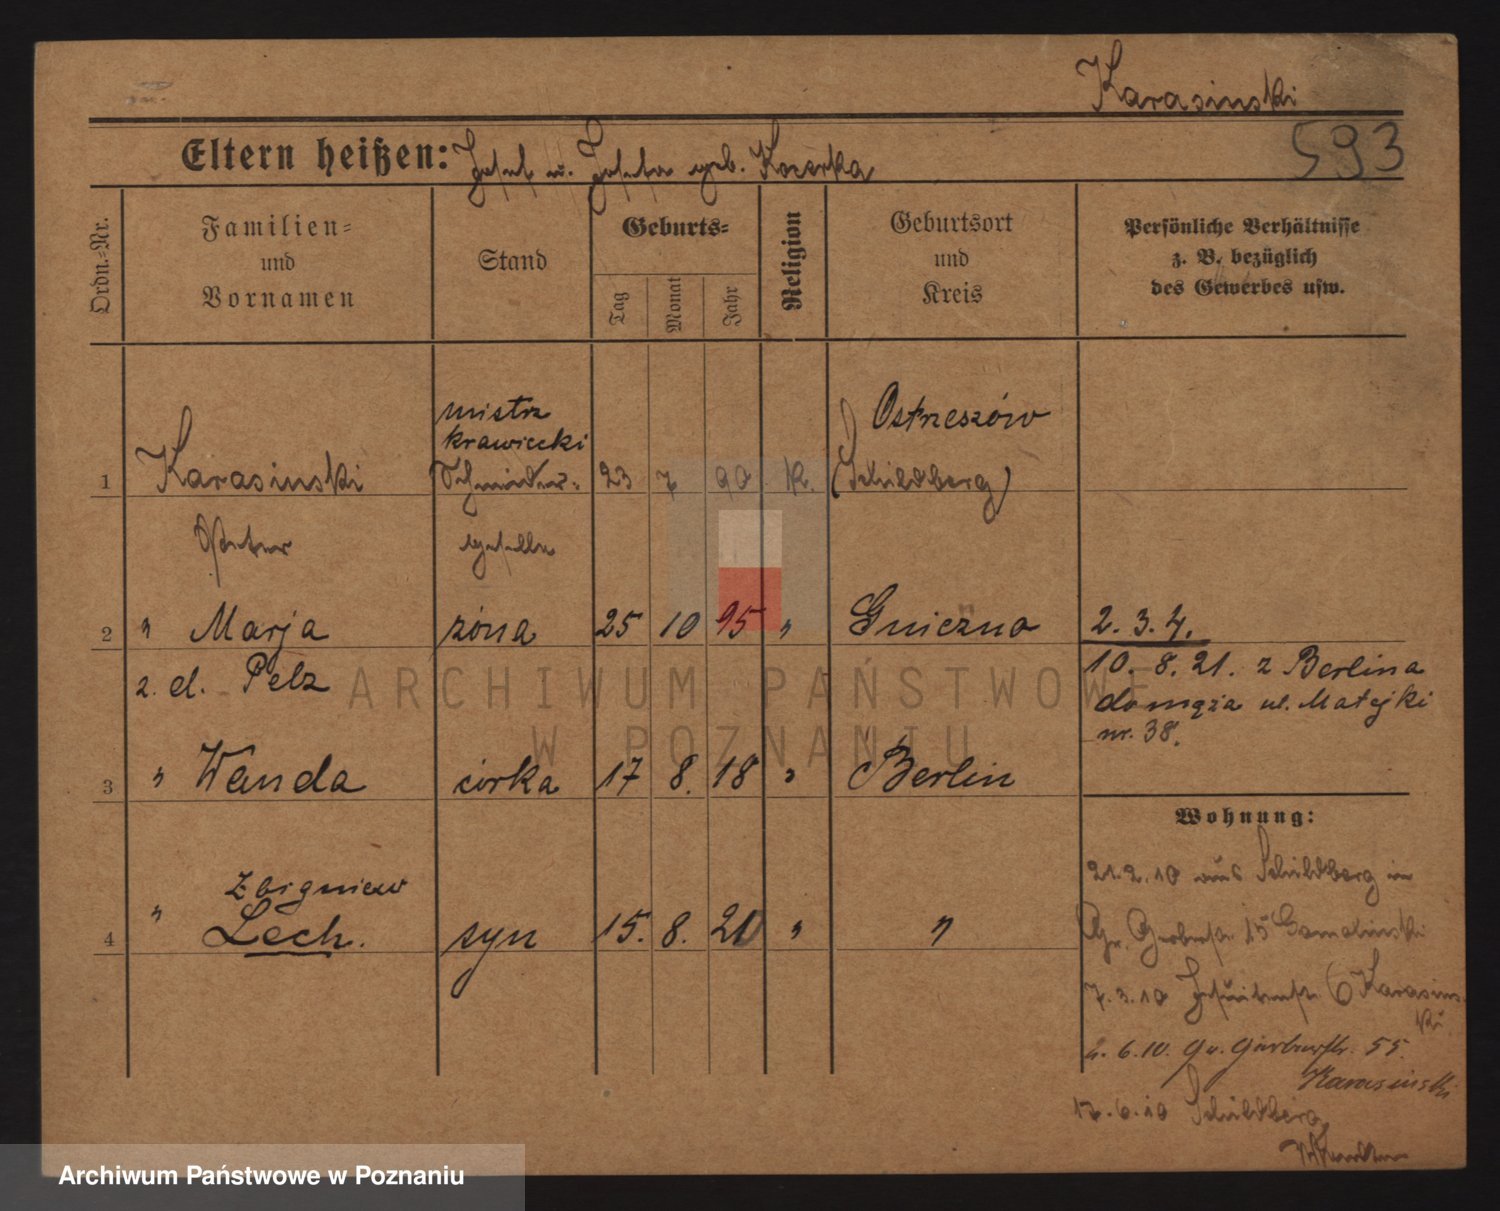 Karasinski
593
Eltern heißen: Josef u. Josefa geb. Kozerka
Ordn.-Nr.
Familien-
und
Vornamen
Stand
Geburts-
Tag
Monat
Jahr
Religion
Geburtsort
und
Kreis
Persönliche Verhältnisse
z. B. bezüglich
des Gewerbes usw.
mistrz
krawiecki
Ostrzeszów
1 Karasinski Schneider- 23 7 90 k. (Schildberg)
Peter geselle
2 " Marja żona 25 10 95 " Gniezno 2. 3. 4.
z d. Pelz
10. 8. 21. z Berlina
do męża ul. Matejki
nr. 38.
3 " Wanda córka 17 8. 18 " Berlin
Zbigniew
4 " Lech. syn 15. 8. 20 " "
Wohnung:
21.2.10 aus Schildberg in
Gr. Gerberstr. 15
7.3.10 Jesuitenstr. 6 Karasins-
ki
6.10. Gr. Gerberstr. 55.
Karasinski
17.6.10 Schildberg
ARCHIWUM PAŃSTWOWE
W POZNANIU
Archiwum Państwowe w Poznaniu